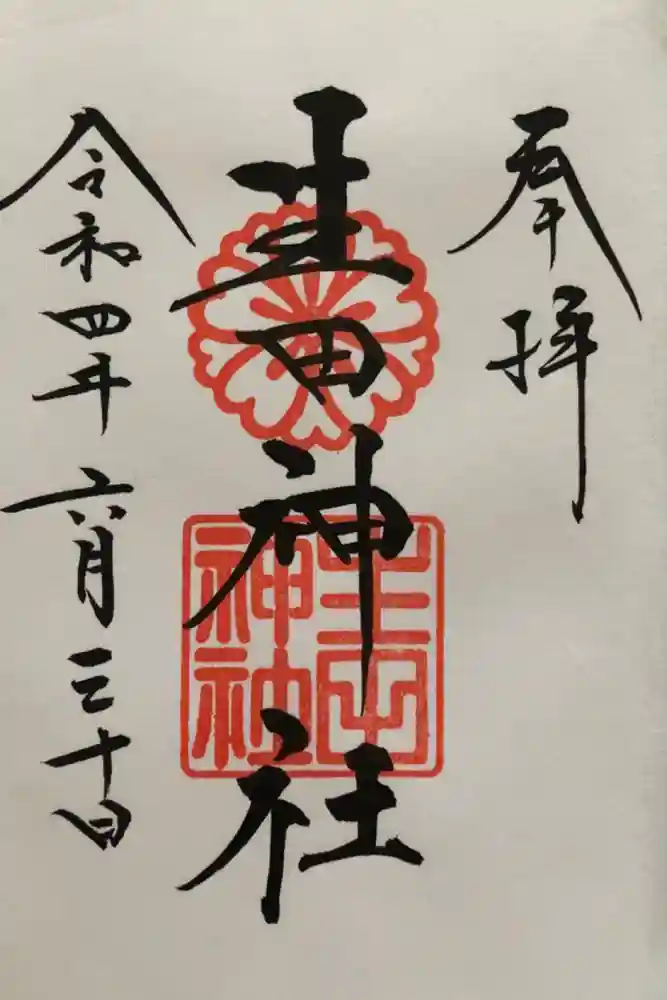 奉拝
生田神社
生田
神社
令和四年六月三十日